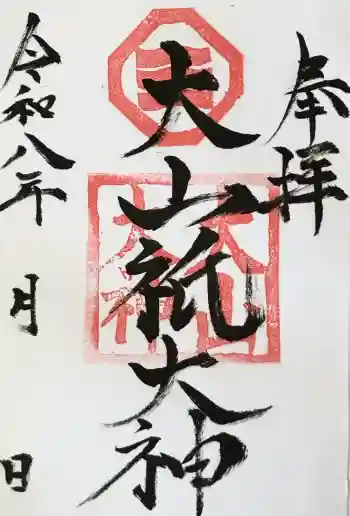 奉拝
大山祇大神
令和八年 月 日